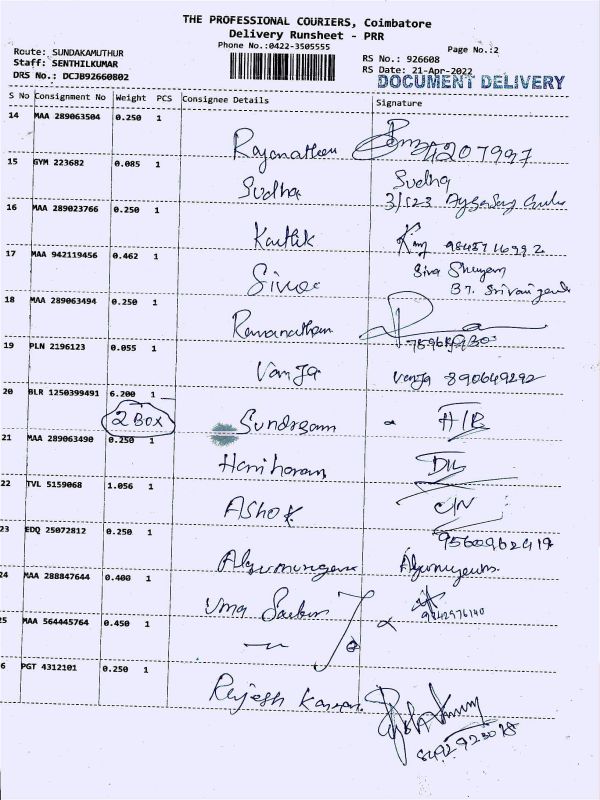 THE PROFESSIONAL COURIERS, Coimbatore
Delivery Runsheet - PRR
Phone No.:0422-3505555
Page No.:2
Route: SUNDAKAMUTHUR
Staff: SENTHILKUMAR
DRS No.: DCJB92660802
RS No.: 926608
RS Date: 21-Apr-2022
DOCUMENT DELIVERY
S No Consignment No Weight PCS Consignee Details Signature
14 MAA 289063504 0.250 1
Rajanatheen 4207997
15 GYM 223682 0.085 1
Sudha Sudha
3/523
16 MAA 289023766 0.250 1
Karthik
17 MAA 942119456 0.462 1
Siva Siva Shuyam
37. Srivari
18 MAA 289063494 0.250 1
Ramanathan
19 PLN 2196123 0.055 1
Vanja Vanja 890649292
20 BLR 1250399491 6.200 1
2 BOX Sundram H/B
21 MAA 289063490 0.250 1
Hariharan
22 TVL 5159068 1.056 1
Ashok C/N
9560962419
23 EDQ 25072812 0.250 1
24 MAA 288847644 0.400 1
Uma 9842976140
25 MAA 564445764 0.450 1
6 PGT 4312101 0.250 1
Rajesh